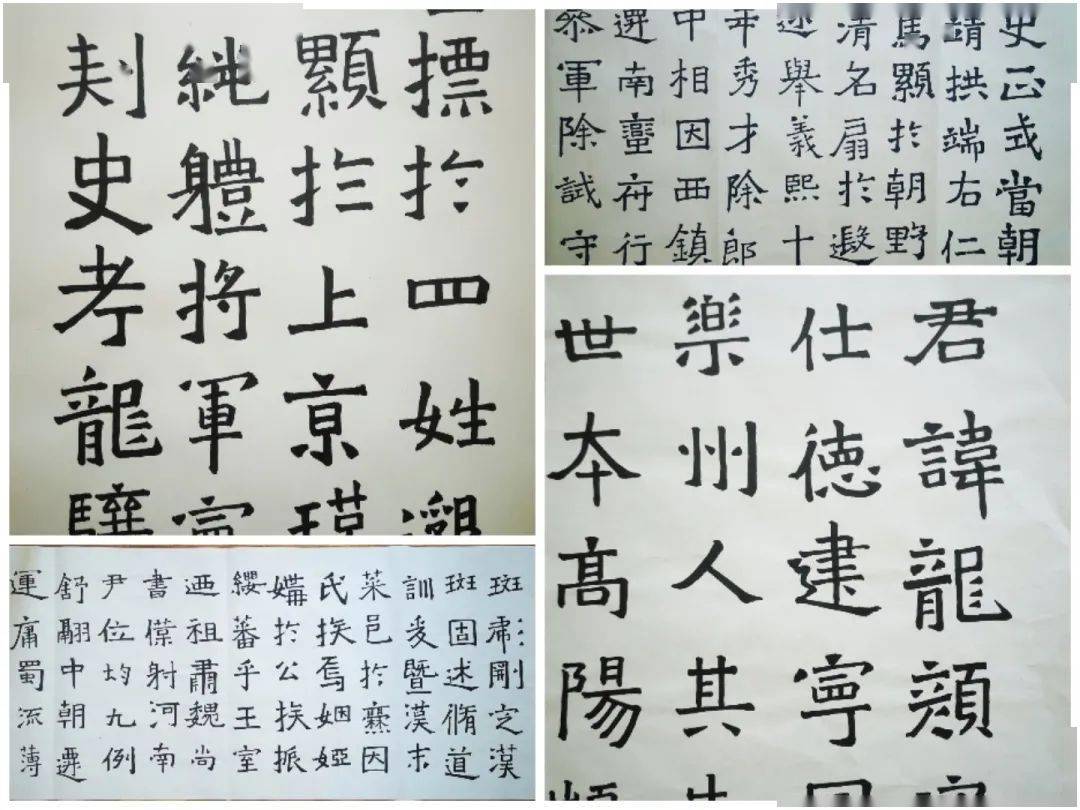 標於四姓
顯於上京
純軆將軍
刾史考龍驤
史正式當朝
靖拱端右仁
馬顯於朝野
清名扇於遐
述舉義熙十
年秀才除郎
中相因西鎮
遷南蠻府行
叅軍除試守
斑彪刪定漢
斑固述脩道
訓爰暨漢末
菜邑於爨因
氏族焉姻婭
媾於公族振
纓蕃乎王室
迺祖肅魏尚
書僕射河南
尹位均九例
舒翮中朝遷
運庸蜀流薄
君諱龍顏
仕德建寧
樂州人其
世本高陽